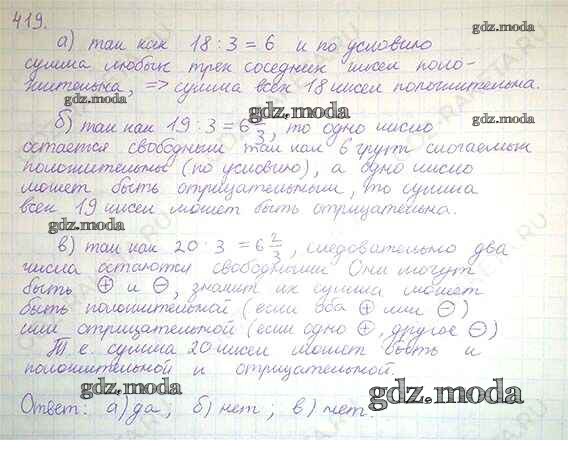 419.
gdz.moda
а) так как 18 : 3 = 6 и по условию
gdz.moda
сумма любых трех соседних чисел поло-
жительна, => сумма всех 18 чисел положительна.
gdz.moda gdz.moda
б) так как 19 : 3 = 6 1/3, то одно число
gdz.moda
остается свободным так как 6 групп слагаемых
положительные (по условию), а одно число
может быть отрицательным, то сумма
всех 19 чисел может быть отрицательна.
gdz.moda
в) так как 20 : 3 = 6 2/3, следовательно два
числа остаются свободными Они могут
gdz.moda
быть ⊕ и ⊖, значит их сумма может
быть положительной (если оба ⊕ или ⊖)
или отрицательной (если одно ⊕, другое ⊖)
Т.е. сумма 20 чисел может быть и
положительной и отрицательной.
gdz.moda gdz.moda
Ответ: а) да; б) нет; в) нет.